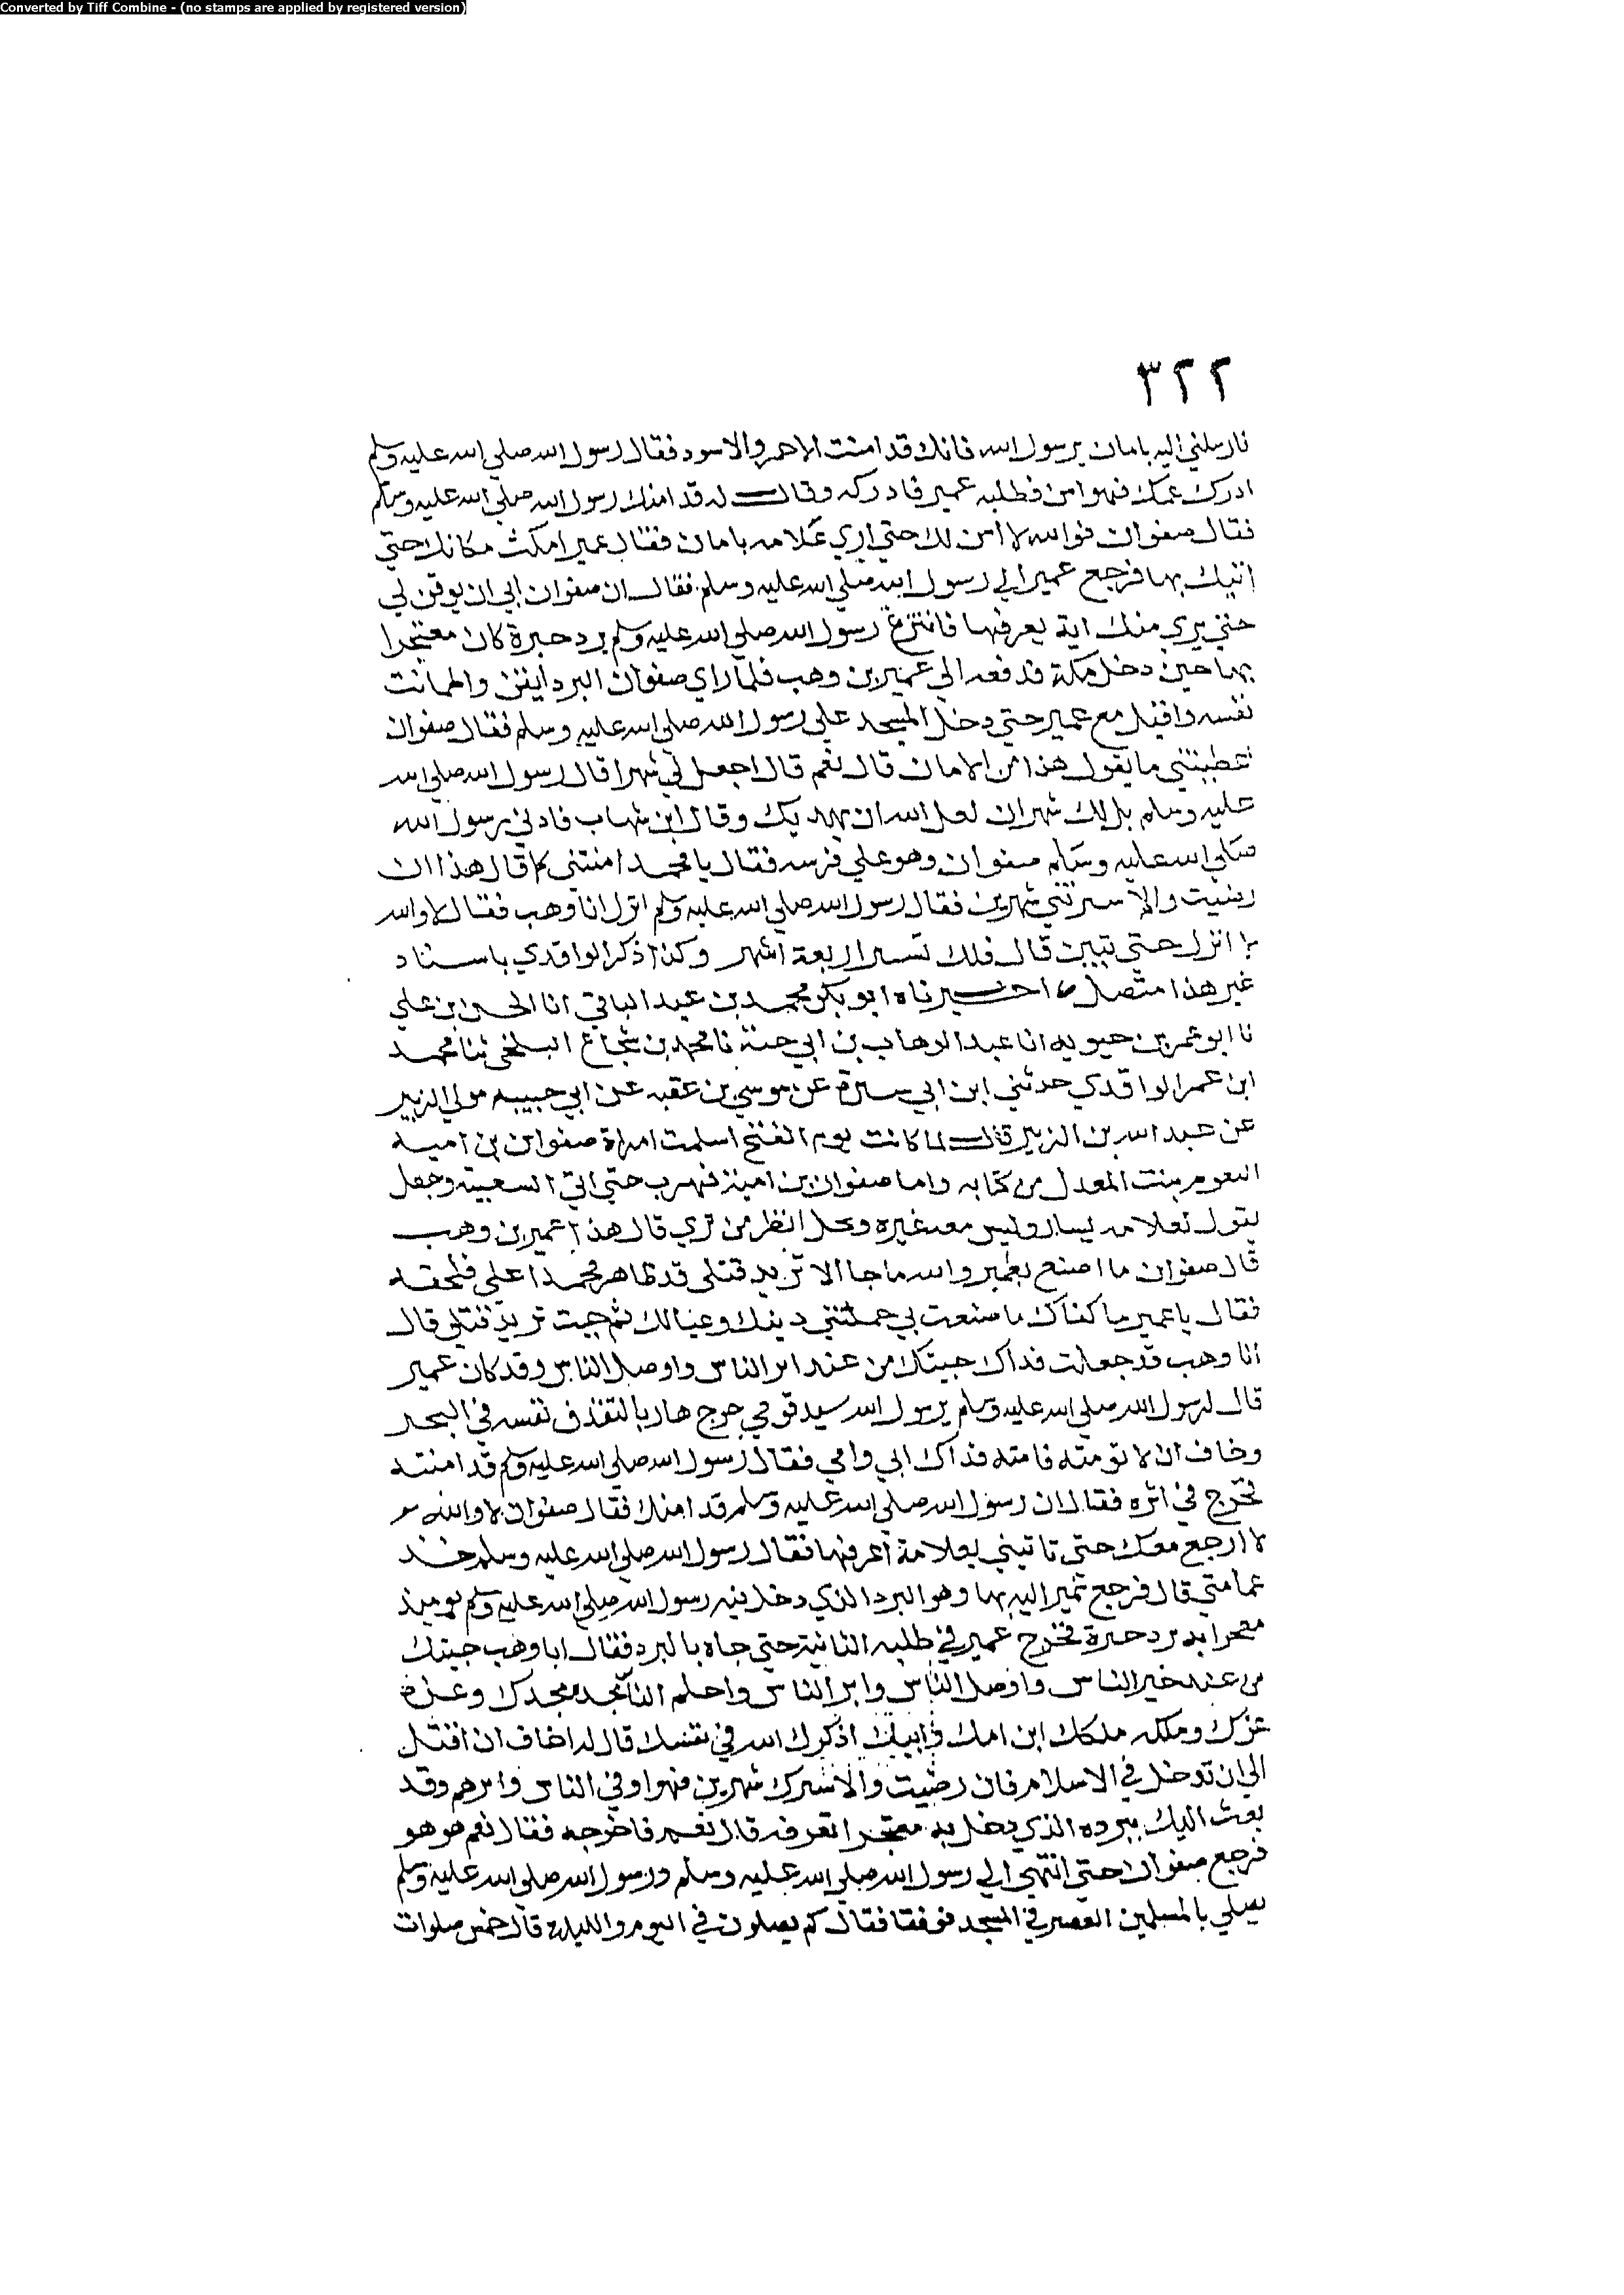 Converted by Tiff Combine - (no stamps are applied by registered version)
٣٢٢
فارسلني اليه بامان يرسول الله فانك قد امنت الاحمر والاسود فقال رسول الله صلي الله عليه وسلم
ادرك عمك فهو امن فطلبه عمير فادركه وقال له قد امنك رسول الله صلي الله عليه وسلم
فقال صفوان فوالله لا امن لك حتي اري علامه بامان فقال عمير امكث مكانك حتي
اتيك بها فرجع عمير الي رسول الله صلي الله عليه وسلم فقال ان صفوان ابي ان يوقن لي
حتي يري منك اية يعرفها فانتزع رسول الله صلي الله عليه وسلم برد حبرة كان معتجرا
بها حين دخل مكة فدفعه الي عمير بن وهب فلما راي صفوان البرد ايقن واطمانت
نفسه واقبل مع عمير حتي دخل المسجد علي رسول الله صلي الله عليه وسلم فقال صفوان
اعطيتني ما يقول هذا من الامان قال نعم قال اجعل لي شهرا قال رسول الله صلي الله
عليه وسلم بل لك شهران لعل الله ان يهديك وقال ابن شهاب فادني يرسول الله
صلي الله عليه وسلم صفوان وهو علي فرسه فقال يا محمد امنتني كم قال هذا ان
رضيت والا سيرتني شهرين فقال رسول الله صلي الله عليه وسلم انزل ابا وهب فقال لا والله
لا انزل حتي تبين قال فلك تسير اربعة اشهر وكذا ذكر الواقدي باسناد
غير هذا متصل اخبرناه ابو بكر محمد بن عبد الباقي انا الحسن بن علي
نا ابو عمر بن حيويه انا عبد الوهاب بن ابي حية نا محمد بن شجاع البلخي ثنا محمد
ابن عمر الواقدي حدثني ابن ابي سبرة عن موسي بن عقبه عن ابي حبيبه مولي الزبير
عن عبد الله بن الزبير قال لما كانت يوم الفتح اسلمت امراة صفوان بن اميه
البعوم بنت المعدل من كنانه واما صفوان بن امية فهرب حتي اتي السعيبه وجعل
يقول لعلامه يسار وليس معه غيره وحل انظر من تري قال هذا عمير بن وهب
قال صفوان ما اصنع بعمير والله ما جا الا تريد قتلي قد ظاهر محمدا علي فلحقه
فقال يا عمير ما كفاك ما صنعت بي حملتني دينك وعيالك ثم جيت تريد قتلي قال
ابا وهب قد جعلت فداك جيتك من عند ابر الناس واوصل الناس وقد كان عمير
قال لرسول الله صلي الله عليه وسلم يرسول الله سيد قومي خرج هاربا لتقذف نفسه في البحر
وخاف ان لا تومنه فامنه فداك ابي وامي فقال رسول الله صلي الله عليه وسلم قد امنته
فخرج في اثره فقال ان رسول الله صلي الله عليه وسلم قد امنك فقال صفوان لا والله
لا ارجع معك حتي تاتيني بعلامة اعرفها فقال رسول الله صلي الله عليه وسلم خذ
عمامتي قال فرجع عمير اليه بها وهو البرد الذي دخل فيه رسول الله صلي الله عليه وسلم يوميذ
معحرا به برد حبرة فخرج عمير في طلبه الثانية حتي جاه بالبرد فقال ابا وهب جيتك
من عند خير الناس واوصل الناس وابر الناس واحلم الناس مجده مجدك وعزه
عزك وملكه ملكك ابن امك وابيك اذكرك الله في نفسك قال له اخاف ان اقتل
الي ان تدخل في الاسلام فان رضيت والا سيرك شهرين فهو اوفي الناس وابرهم وقد
بعث اليك ببرده الذي دخل به معتجرا تعرفه قال نعم فاخرجه فقال نعم هو هو
فرجع صفوان حتي انتهي الي رسول الله صلي الله عليه وسلم ورسول الله صلي الله عليه وسلم
يصلي بالمسلمين العصر في المسجد فوقفا فقال كم يصلون في اليوم والليلة قال خمس صلوات